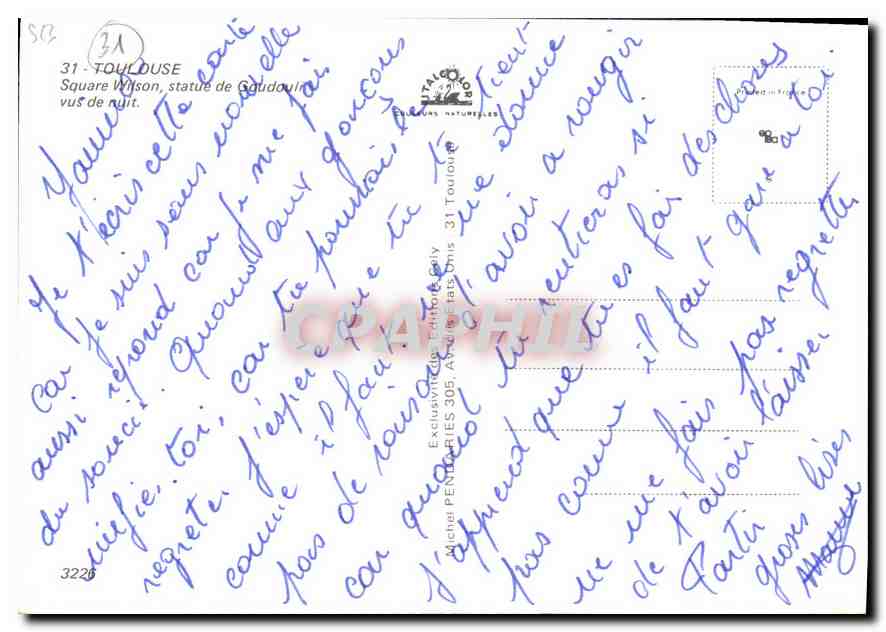 SB
31
31 - TOULOUSE
Square Wilson, statue de Goudouli
vus de nuit.
ITALCOLOR
COULEURS NATURELLES
Printed in France
Exclusivité des Editions Cely
Michel PENDARIES 305, Av. des Etats Unis 31 Toulouse
CPAPHIL
3226
Je t'écris cette carte
car je suis sans nouvelle
aussi répond car je me fais
du souci. Quand aux garçons
méfie, toi, car tu pourrais le
regreter j'espère que tu te tient
comme il faut, ne me donne
pas de raison d'avoir a rougir
car quand tu rentieras si
j'apprend que tu es fai des choses
pas comme il faut gare a toi
ne me fais pas regretter
de t'avoir laisser
Partir
groses bises
Maman